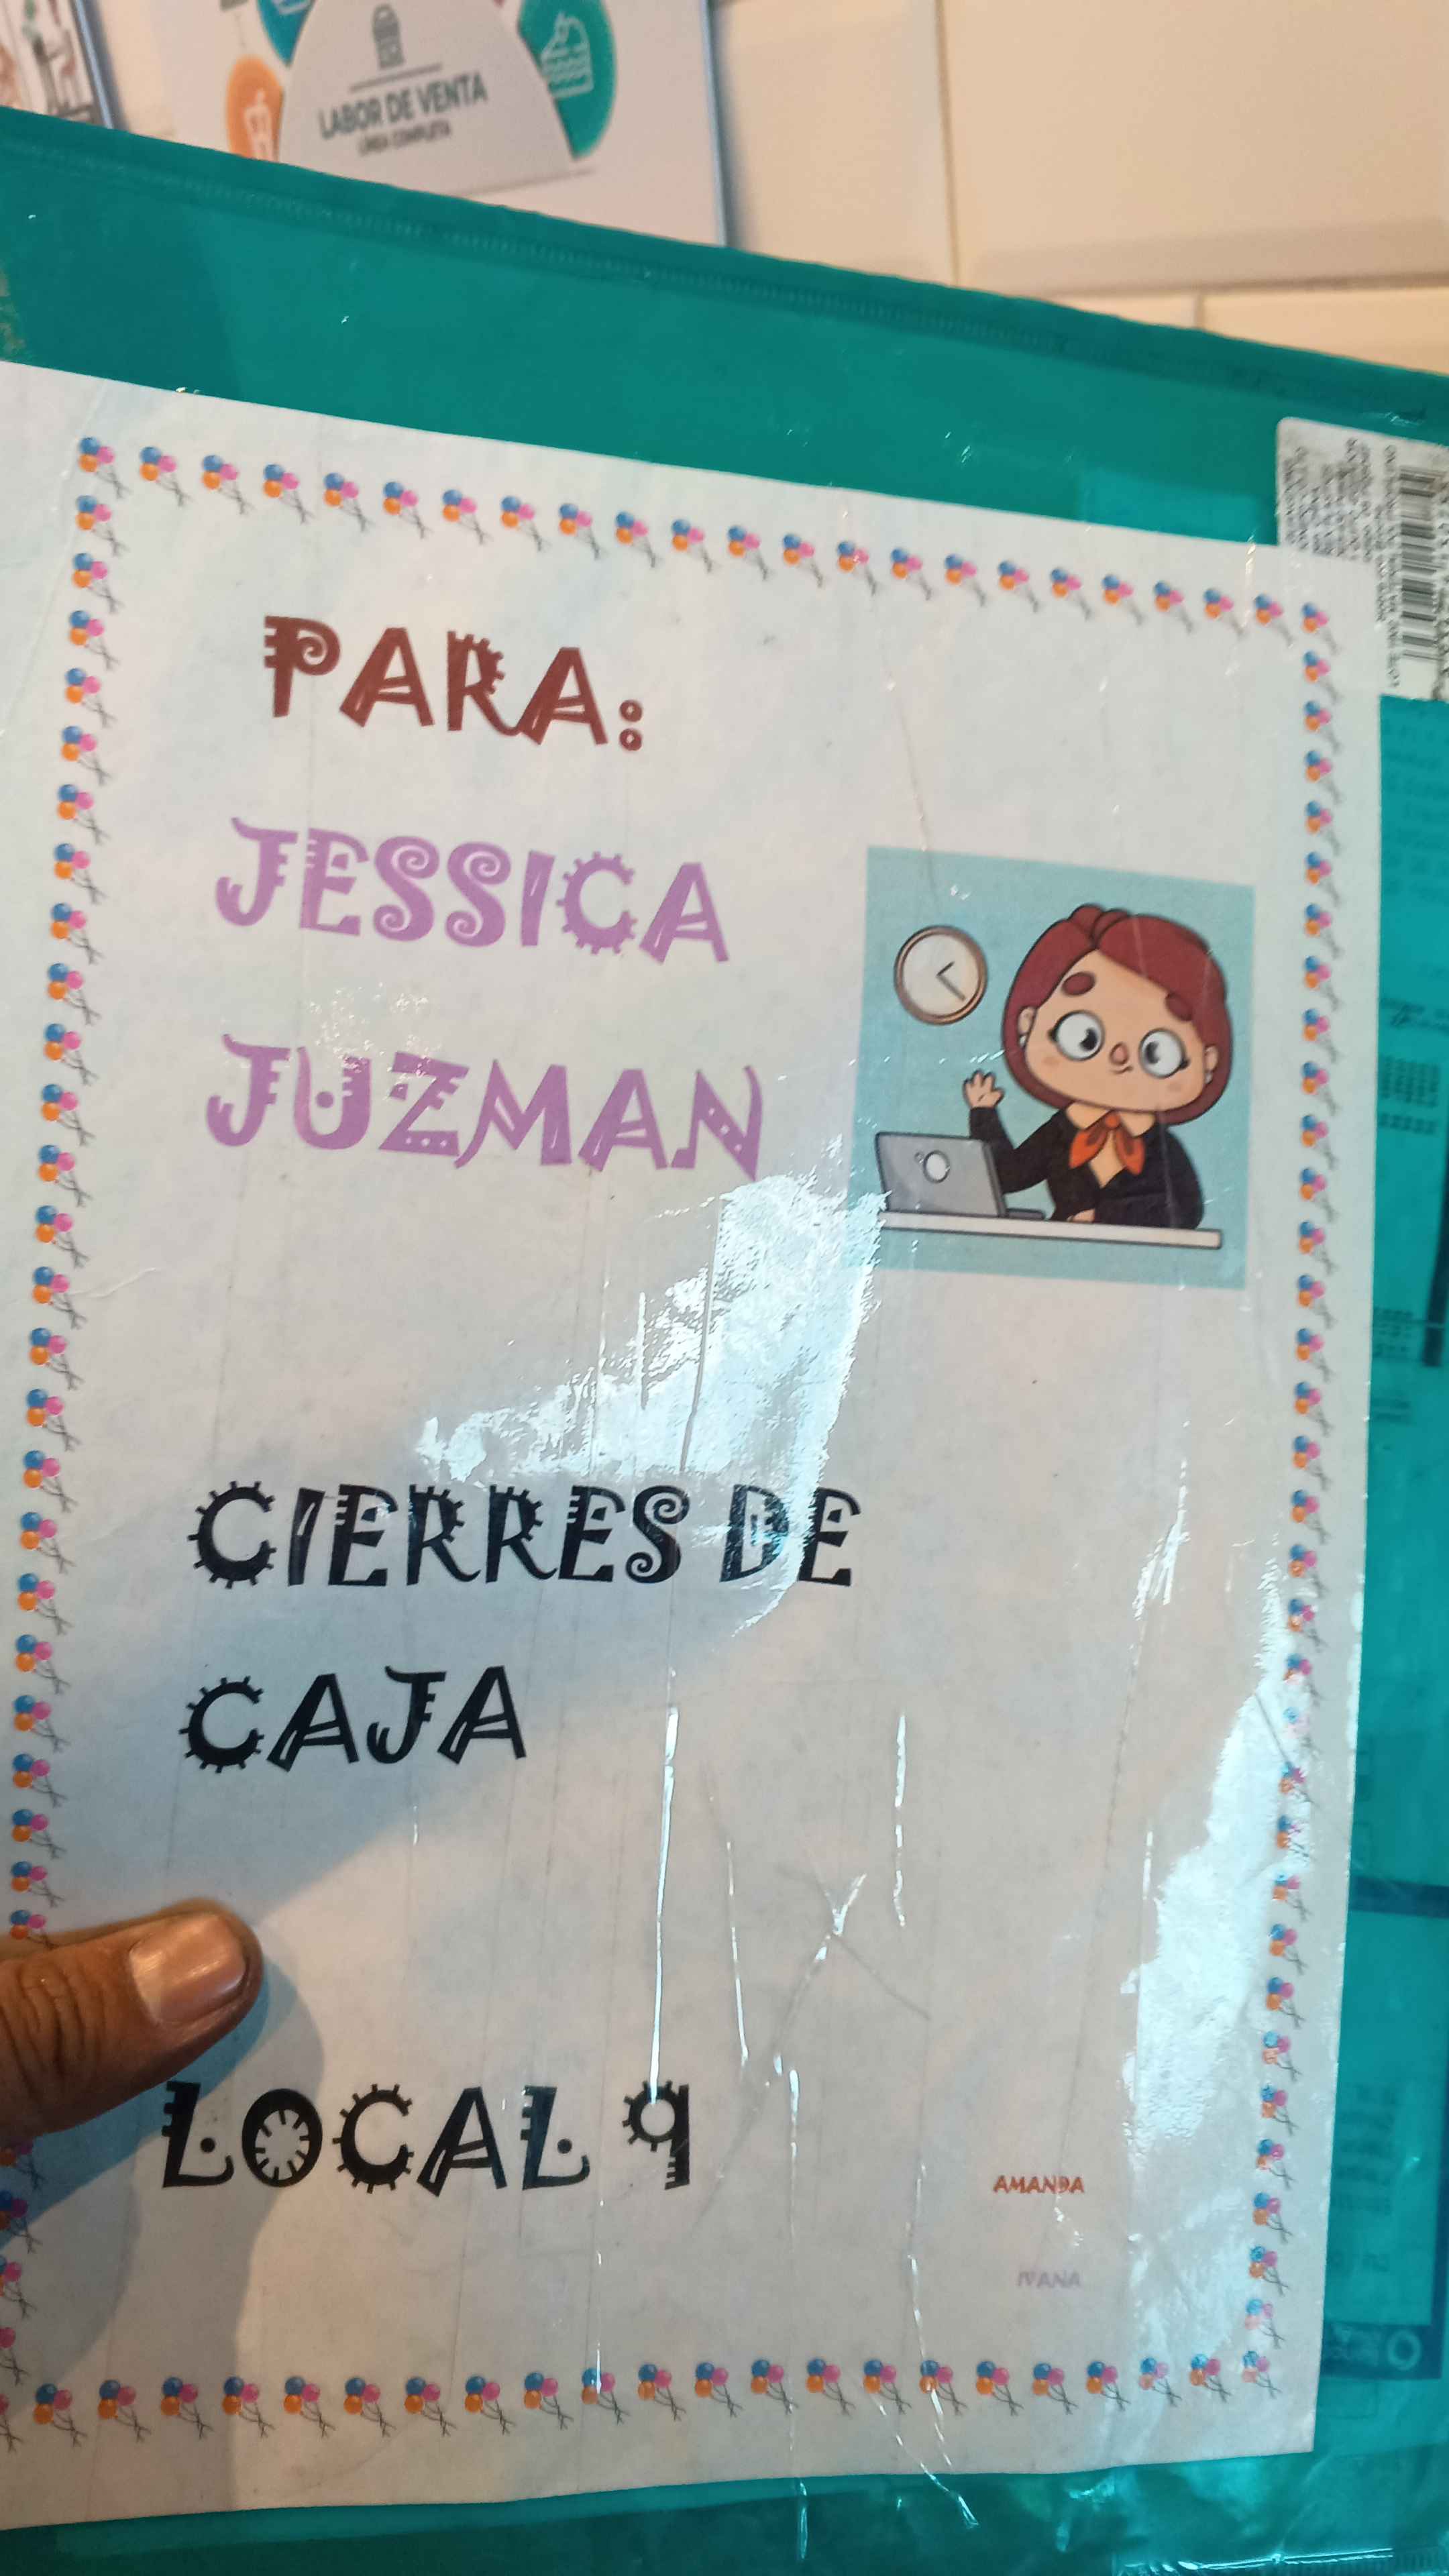 LABOR DE VENTA
LÍNEA COMPLETA
PARA:
JESSICA
JUZMAN
CIERRES DE
CAJA
LOCAL 9
AMANDA
IVANA